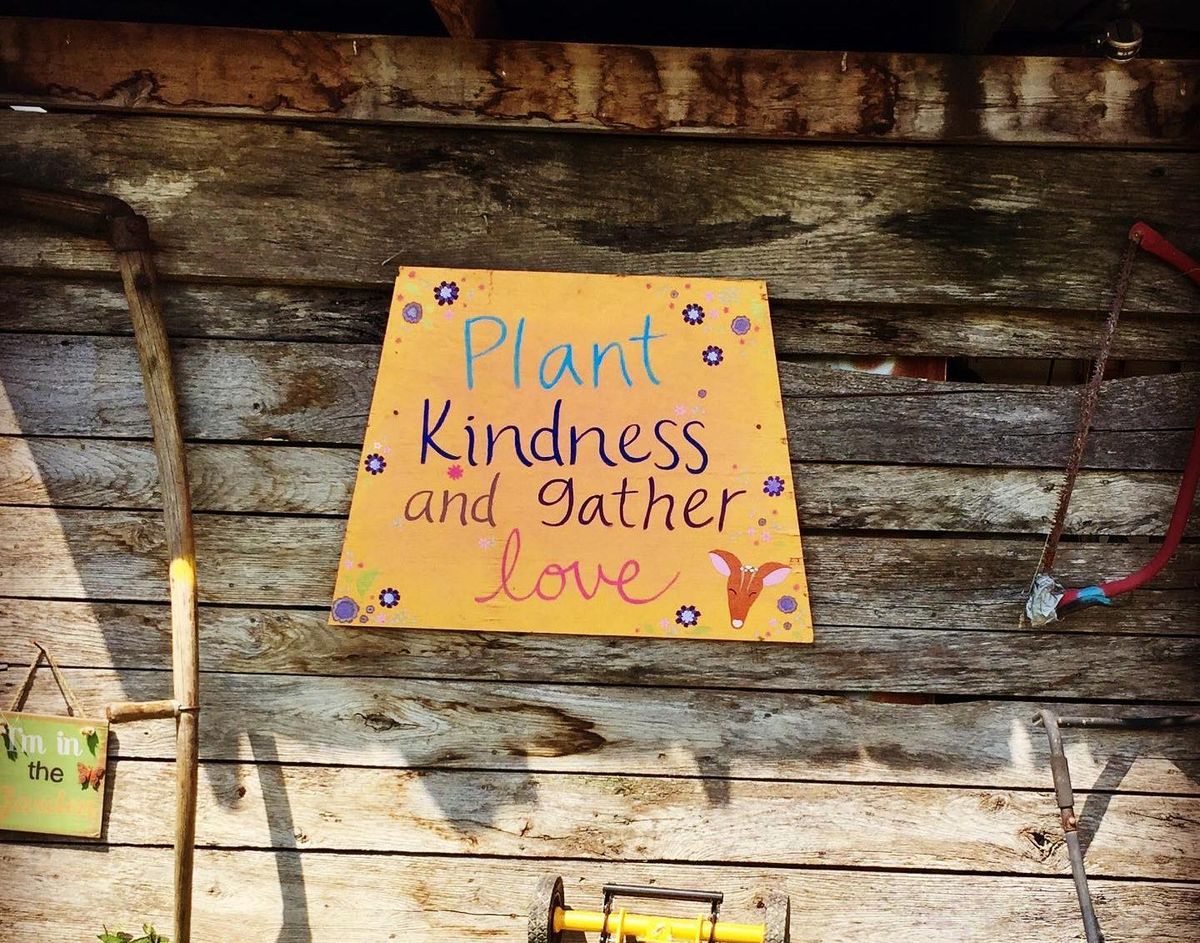 Plant
Kindness
and gather
love
I'm in
the
Garden